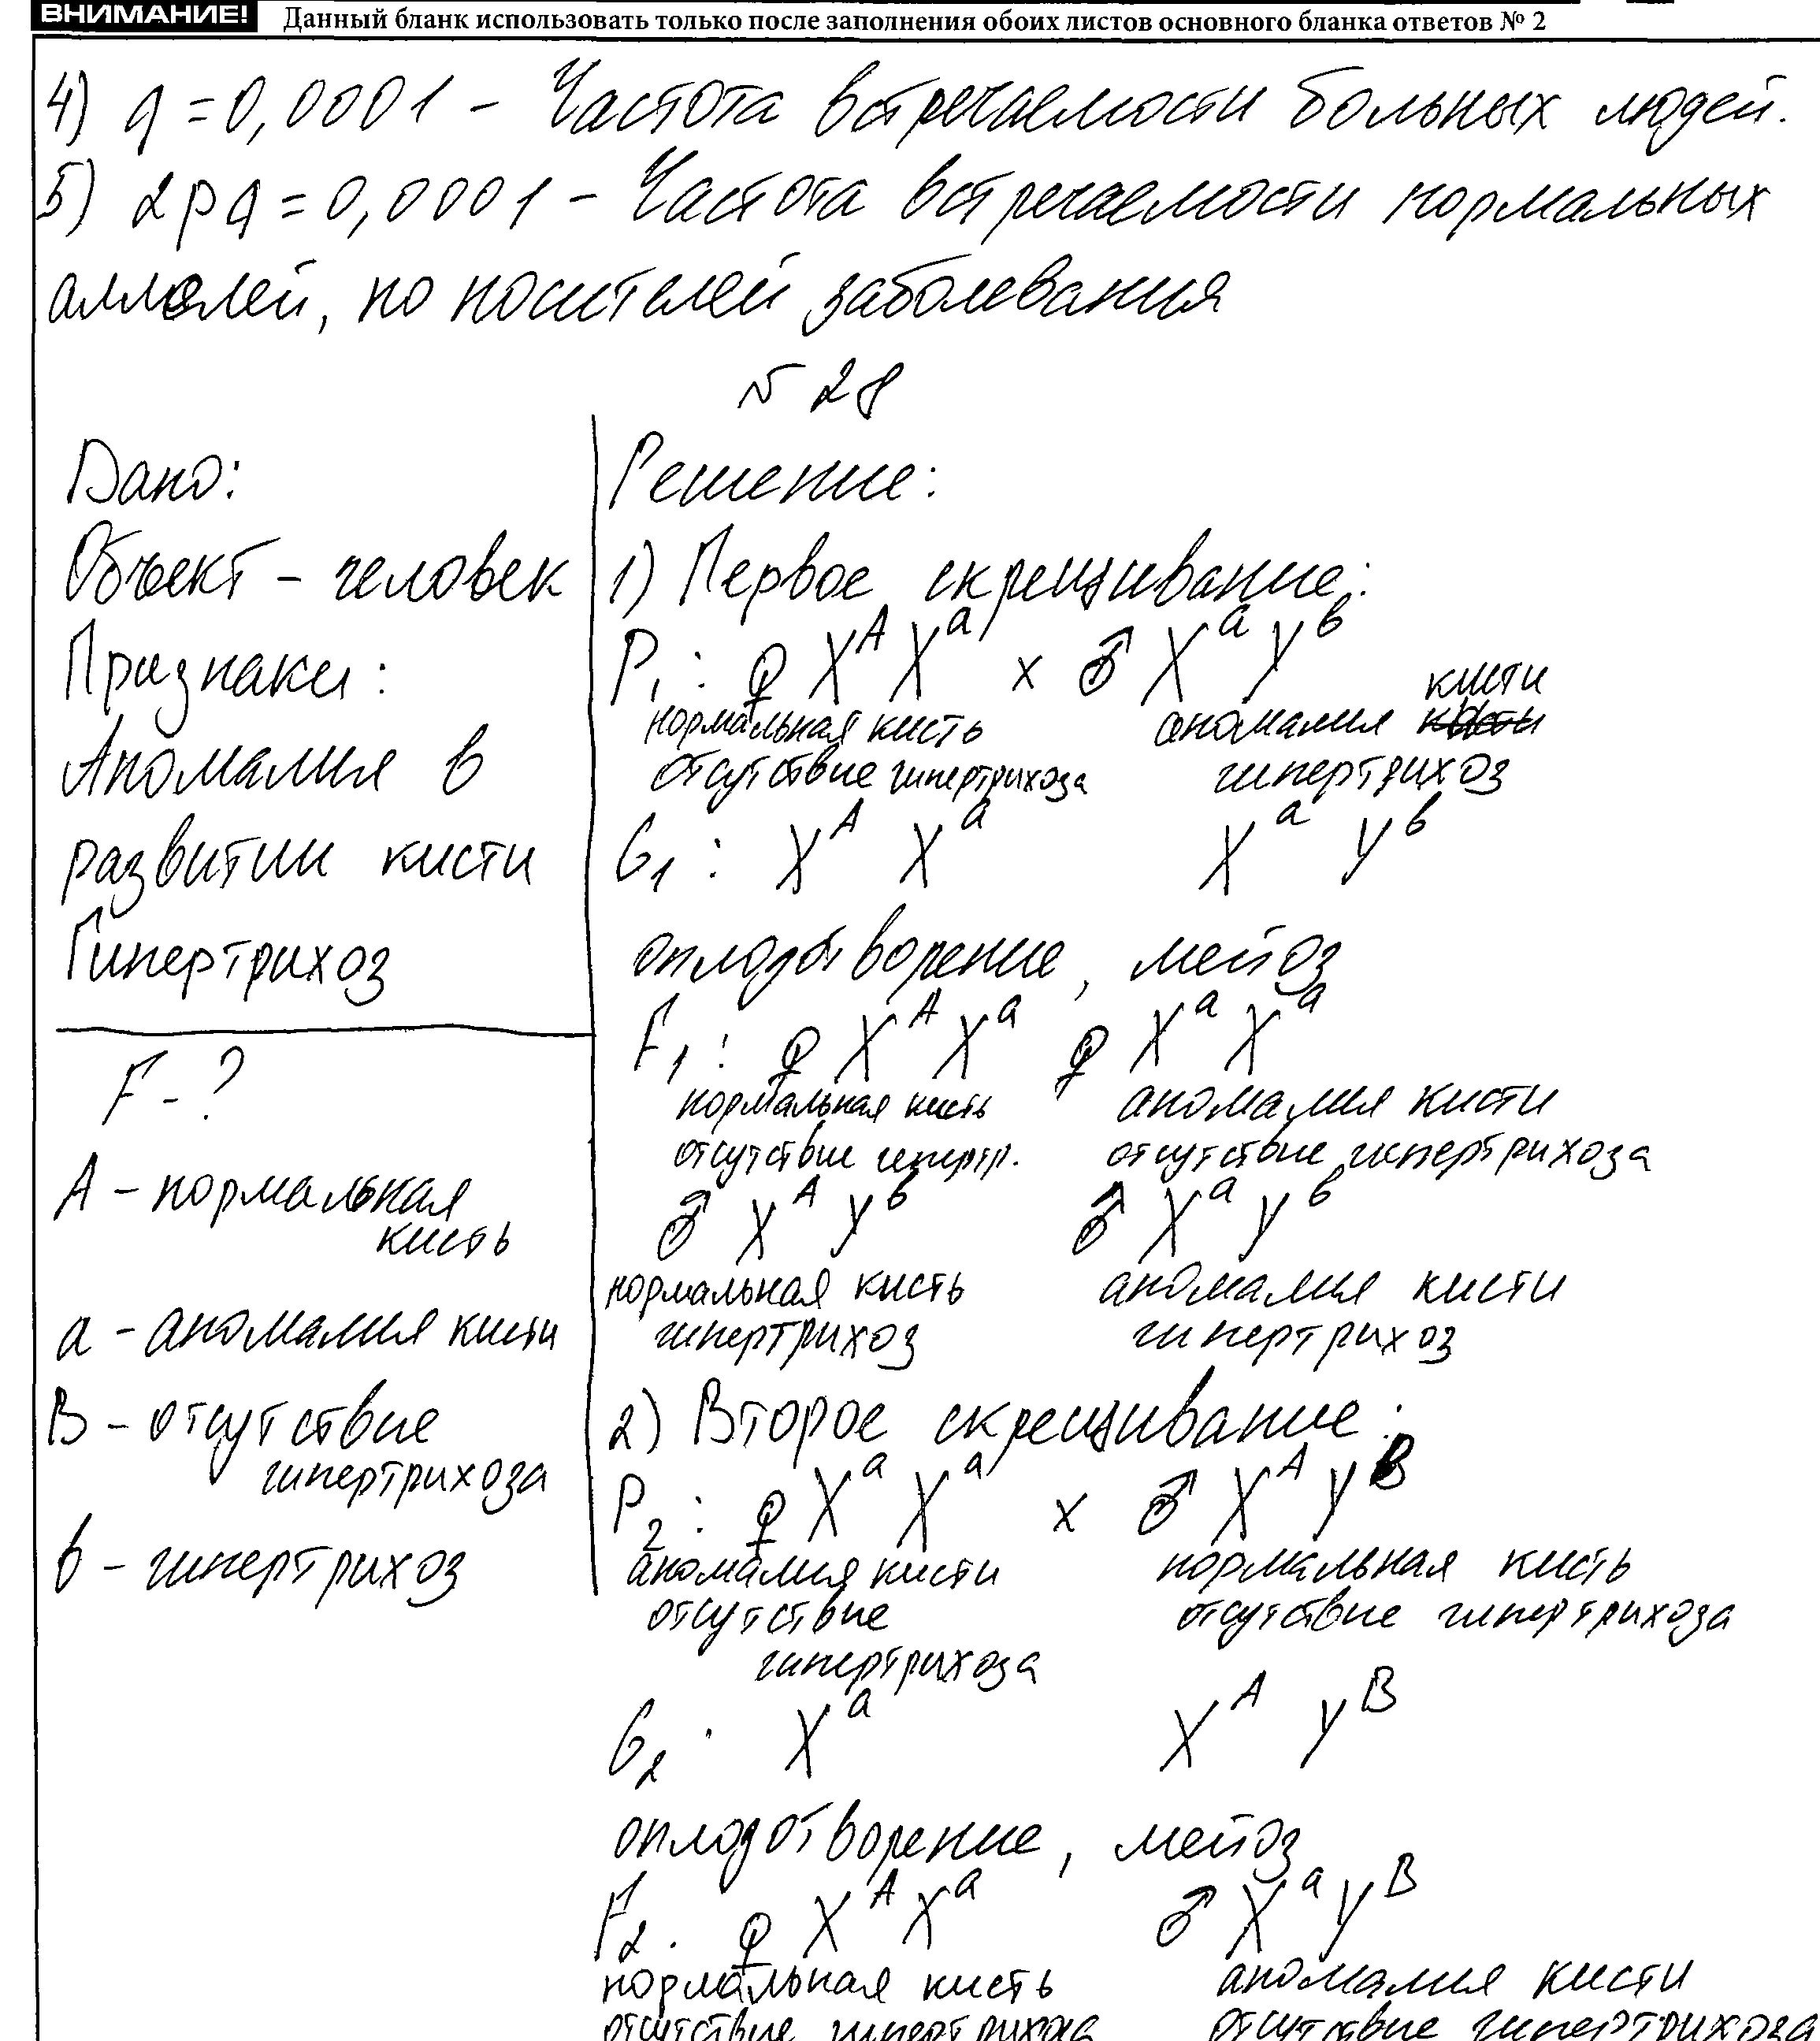 ВНИМАНИЕ! Данный бланк использовать только после заполнения обоих листов основного бланка ответов № 2
4) q = 0,0001 – Частота встречаемости больных людей.
5) 2pq = 0,0001 – Частота встречаемости нормальных
аллелей, но носителей заболевания
№ 28
Дано:
Объект – человек
Признаки:
Аномалия в
развитии кисти
Гипертрихоз
F - ?
A – нормальная
кисть
a – аномалия кисти
B – отсутствие
гипертрихоза
b – гипертрихоз
Решение:
1) Первое скрещивание:
P₁: ♀ Xᴬ Xᵃ x ♂ Xᵃ Yᵇ
нормальная кисть аномалия кисти
отсутствие гипертрихоза гипертрихоз
G₁: Xᴬ Xᵃ Xᵃ Yᵇ
оплодотворение, мейоз
F₁: ♀ Xᴬ Xᵃ ♀ Xᵃ Xᵃ
нормальная кисть аномалия кисти
отсутствие гипертр. отсутствие гипертрихоза
♂ Xᴬ Yᵇ ♂ Xᵃ Yᵇ
нормальная кисть аномалия кисти
гипертрихоз гипертрихоз
2) Второе скрещивание:
P₂: ♀ Xᵃ Xᵃ x ♂ Xᴬ Yᴮ
аномалия кисти нормальная кисть
отсутствие отсутствие гипертрихоза
гипертрихоза
G₂: Xᵃ Xᴬ Yᴮ
оплодотворение, мейоз
F₂: ♀ Xᴬ Xᵃ ♂ Xᵃ Yᴮ
нормальная кисть аномалия кисти
отсутствие гипертрихоза отсутствие гипертрихоза